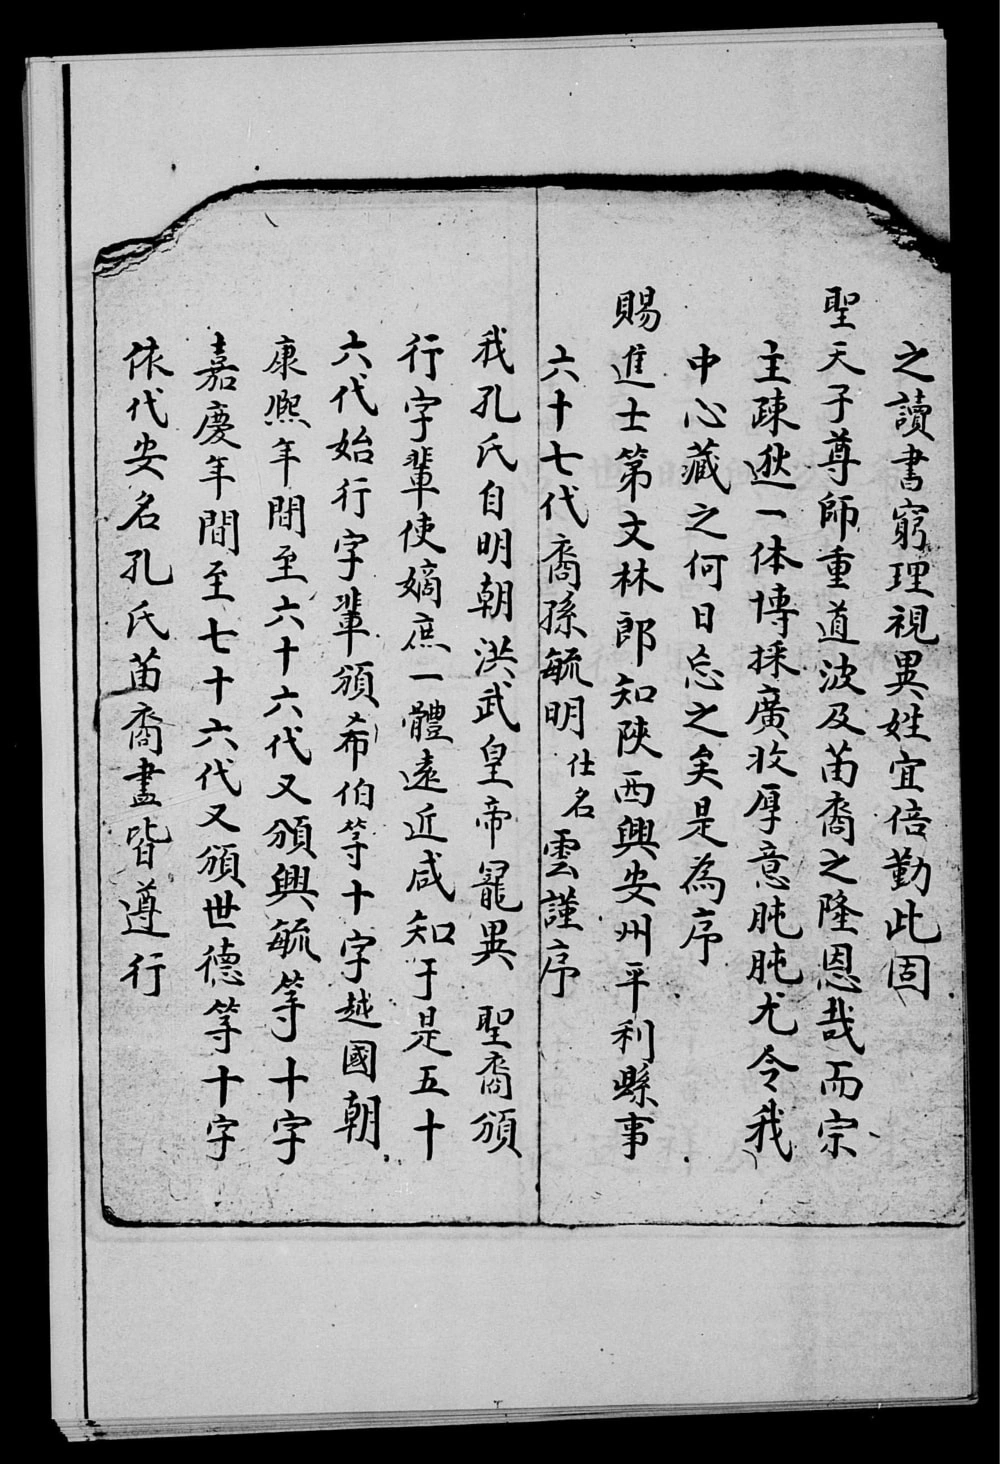 之讀書窮理視異姓宜倍勤此固
聖天子尊師重道波及苗裔之隆恩哉而宗
主疎逖一体博採廣收厚意肫肫尤令我
中心藏之何日忘之矣是為序
賜進士第文林郎知陝西興安州平利縣事
六十七代裔孫毓明仕名雲謹序
我孔氏自明朝洪武皇帝寵異 聖裔頒
行字輩使嫡庶一體遠近咸知于是五十
六代始行字輩頒希伯等十字越國朝
康熙年間至六十六代又頒興毓等十字
嘉慶年間至七十六代又頒世德等十字
依代安名孔氏苗裔盡皆遵行